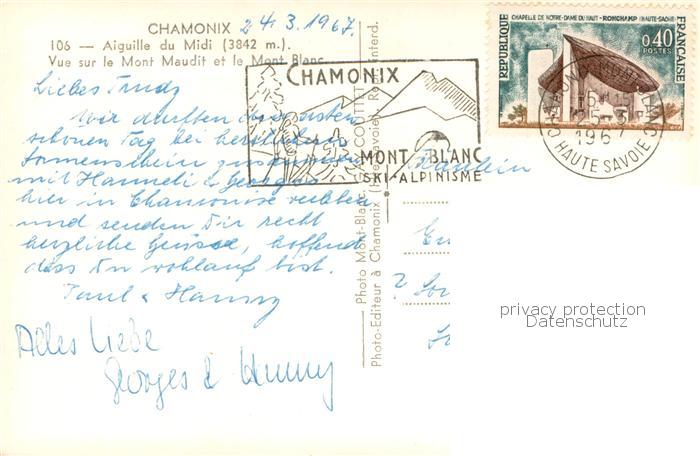 CHAMONIX 24.3.1967.
106 — Aiguille du Midi (3842 m.).
Vue sur le Mont Maudit et le Mont Blanc
Liebes Trudy
Wir durften den ersten
schönen Tag bei herrlichem
Sonnenschein zusammen
mit Hanneli & Georges
hier in Chamonix verleben
und senden Dir recht
herzliche Grüsse, hoffend
dass Du wohlauf bist.
Paul & Hanny
Alles Liebe
Georges &
CHAMONIX
MONT BLANC
SKI-ALPINISME
Photo Mont-Blanc
Photo-Editeur à Chamonix (Hte-Savoie). Rep. interd.
RÉPUBLIQUE FRANÇAISE
CHAPELLE DE NOTRE-DAME DU HAUT - RONCHAMP (HAUTE-SAÔNE)
0,40
POSTES
CHAMONIX MONT BLANC
1967
HAUTE SAVOIE
Fräulein
privacy protection
Datenschutz